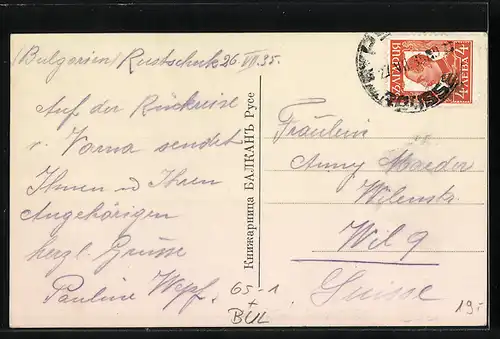 (Bulgarien) Rustschuk 26. VII. 35.
Auf der Rückreise
v. Varna sendet
Ihnen und Ihren
Angehörigen
herzl. Grüsse
Pauline Wepf.
Книжарница БАЛКАНЪ Русе
БЪЛГАРИЯ
4 ЛЕВА 4
ROUSSE
Fräulein
Anny Maeder
Wil
Suisse
65-1
+
BUL
19.-